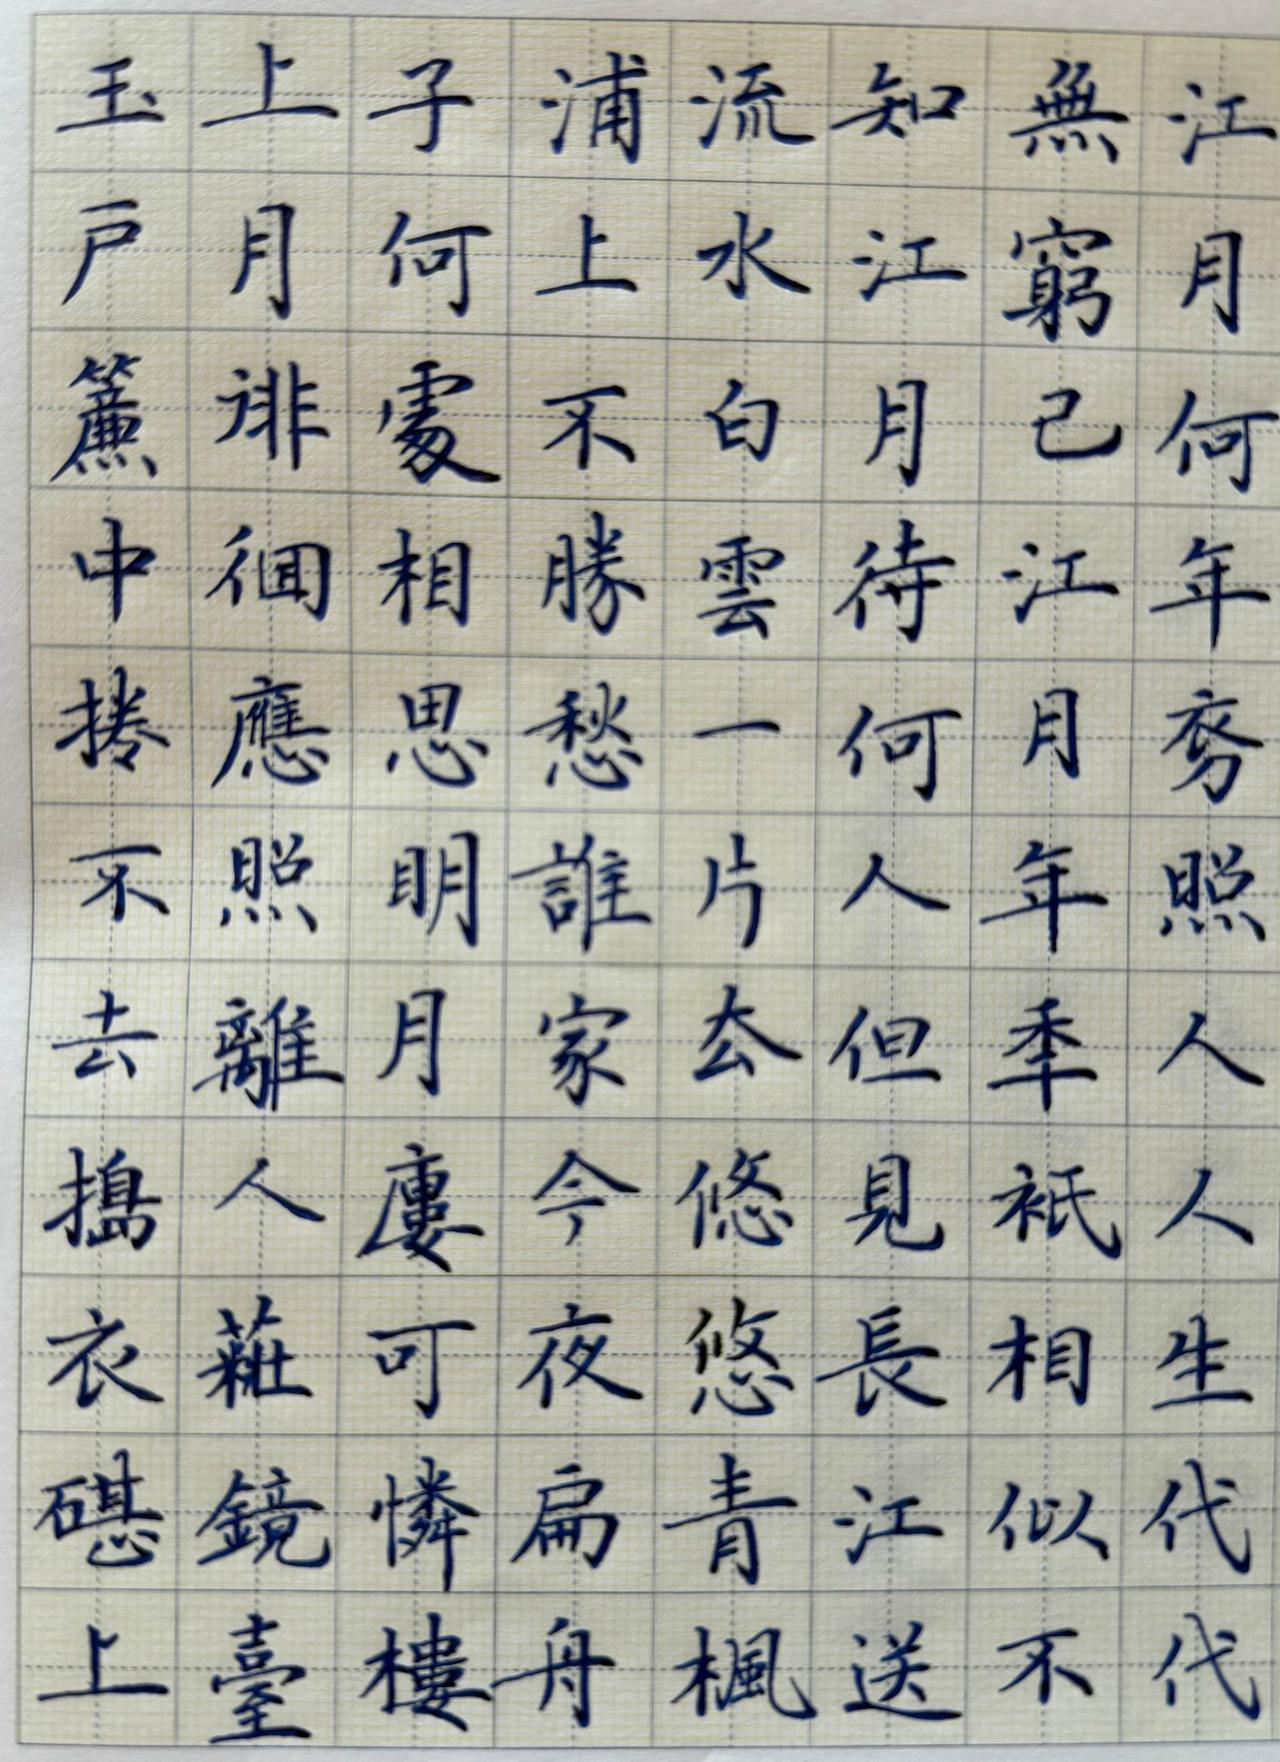 江月何年初照人人生代代
無窮已江月年秊祇相似不
知江月待何人但見長江送
流水白雲一片厺悠悠青楓
浦上不勝愁誰家今夜扁舟
子何處相思明月廔可憐樓
上月徘徊應照離人粧鏡臺
玉戸簾中捲不去搗衣碪上